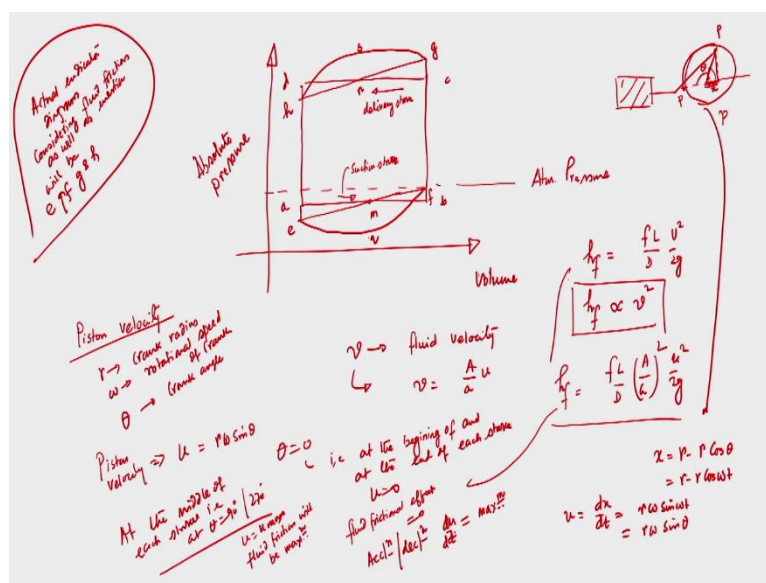 Actual indicator
diagrams
considering fluid friction
as well as inertia
will be
e q f g s h
Absolute
pressure
s
g
d
c
n
h
delivery stroke
Suction stroke
a
f b
m
e
q
Atm. Pressure
Volume
P
θ
P
P
Piston velocity
r → crank radius
ω → rotational speed
of crank
θ → crank angle
Piston
velocity ⇒ u = rω sinθ
At the middle of
each stroke i.e
at θ = 90° | 270°
u = u max
fluid friction will
be max^m
v → fluid velocity
↳ v = A/a u
θ = 0
i.e at the begining of and
at the end of each stroke
u=0
fluid frictional effect
= 0
Acc^n | dec^n du/dt = max^m
h_f = fL/D v²/2g
h_f ∝ v²
h_f = fL/D (A/a)² u²/2g
x = r - r cosθ
= r - r cosωt
u = dx/dt = rω sinωt
= rω sinθ